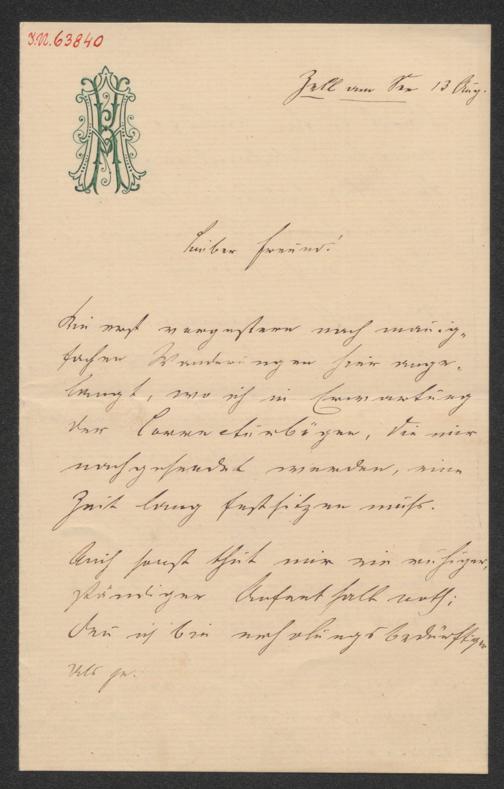 I.N. 63840
Zell am See 13 Aug.
Lieber Freund!
Bin erst vorgestern nach mannig-
fachen Wanderungen hier ange-
langt, wo ich in Erwartung
der Correcturbögen, die mir
nachgesendet werden, eine
Zeit lang festsitzen muß.
Auch sonst thut mir ein ruhiger,
ständiger Aufenthalt noth;
denn ich bin erholungsbedürftiger
als je.